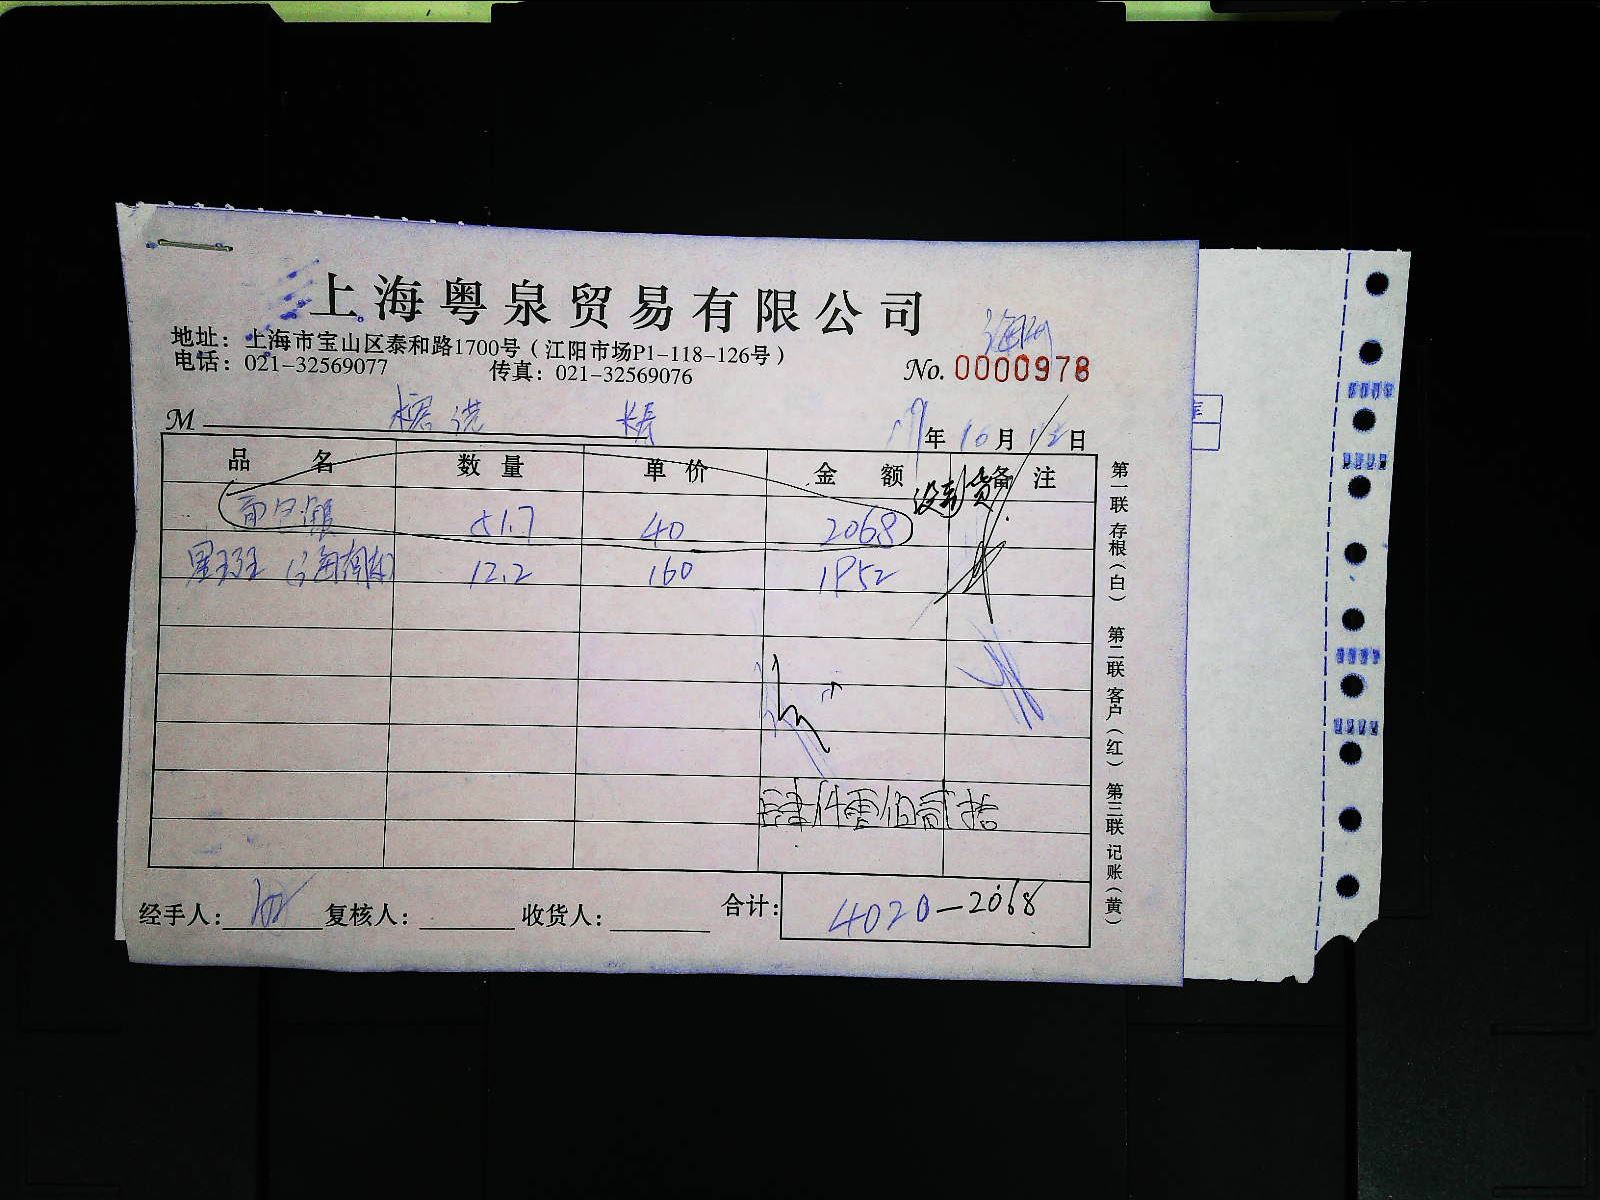 上海粤泉贸易有限公司
地址：上海市宝山区泰和路1700号（江阳市场P1-118-126号）
电话：021-32569077 传真：021-32569076
No. 0000978
M
年 10月 12日
品名 数量 单价 金额 备注
没有货
51.7 40 2068
星斑 12.2 160 1952
肆仟零佰贰拾
经手人： 复核人： 收货人： 合计： 4020-2068
第一联 存根（白） 第二联 客户（红） 第三联 记账（黄）